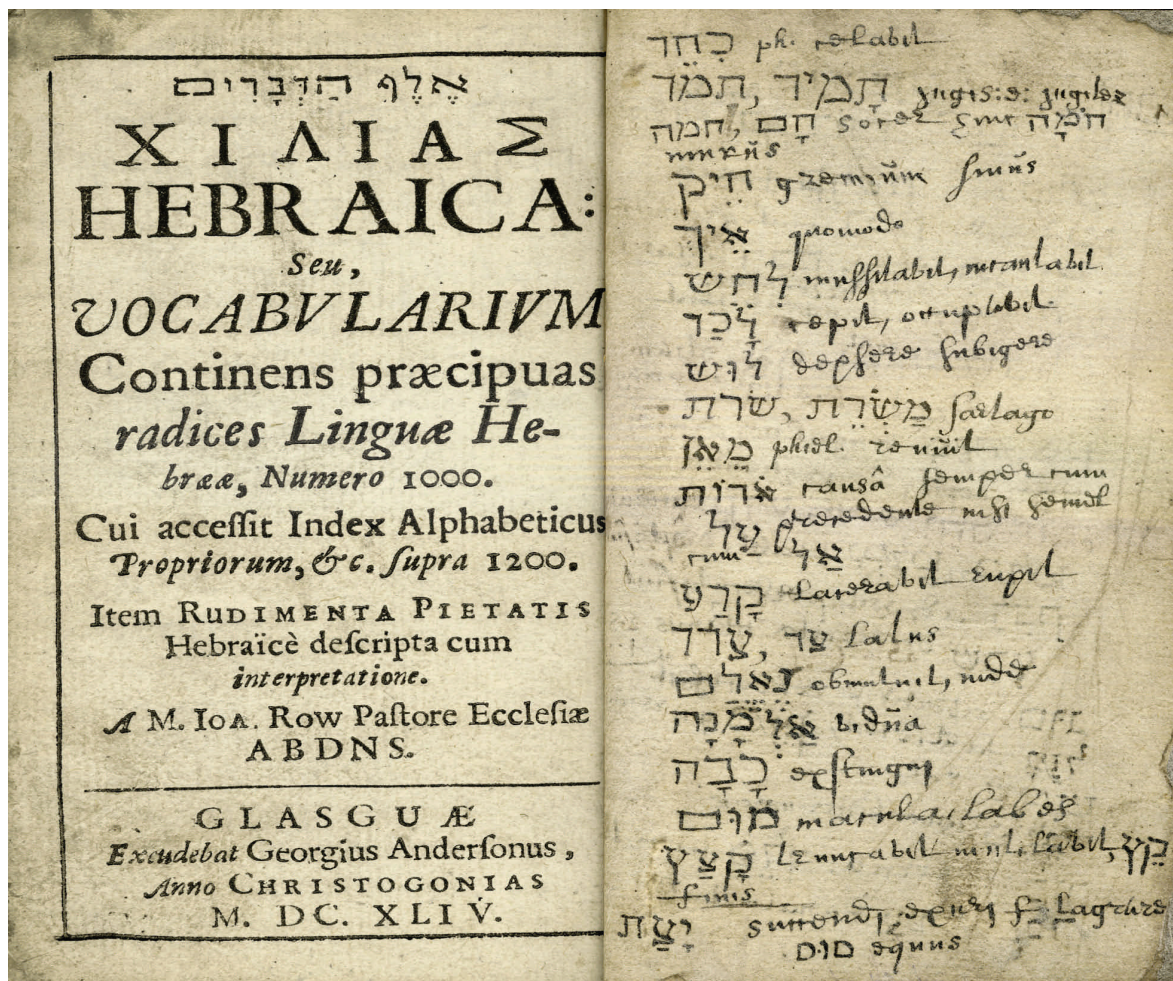 אֶלֶף הַדְּבָרִים
ΧΙΛΙΑΣ
HEBRAICA:
Seu,
VOCABVLARIVM
Continens præcipuas
radices Linguæ He-
brææ, Numero 1000.
Cui accessit Index Alphabeticus
Propriorum, &c. supra 1200.
Item RUDIMENTA PIETATIS
Hebraïcè descripta cum
interpretatione.
A M. IOA. Row Pastore Ecclesiæ
ABDNS.
GLASGUÆ
Excudebat Georgius Andersonus,
Anno CHRISTOGONIAS
M. DC. XLIV.
כִּחֵד ph. celabit
תָּמִיד, תמד
חָם, חמה socer חֹמָה
murus
חֵיק gremium sinus
אֵיךְ quomodo
לחש mussitabit, incantabit
לָכַד cepit, occupabit
לוּשׁ depsere subigere
מַשְׂרֵת, שׂרת sartago
מֵאֵן phiel. renuit
אֹדוֹת causâ semper cum
עַל precedente nisi semel
cum אֶל
קָרַע lacerabit
צַד, צדד latus
נֶאֱלַם obmutuit, inde
אַלְמָנָה vidua
כָּבָה extingui
מוּם macula, labes
קָצַץ קֵץ
finis
יָצַת succendi
סוּס equus